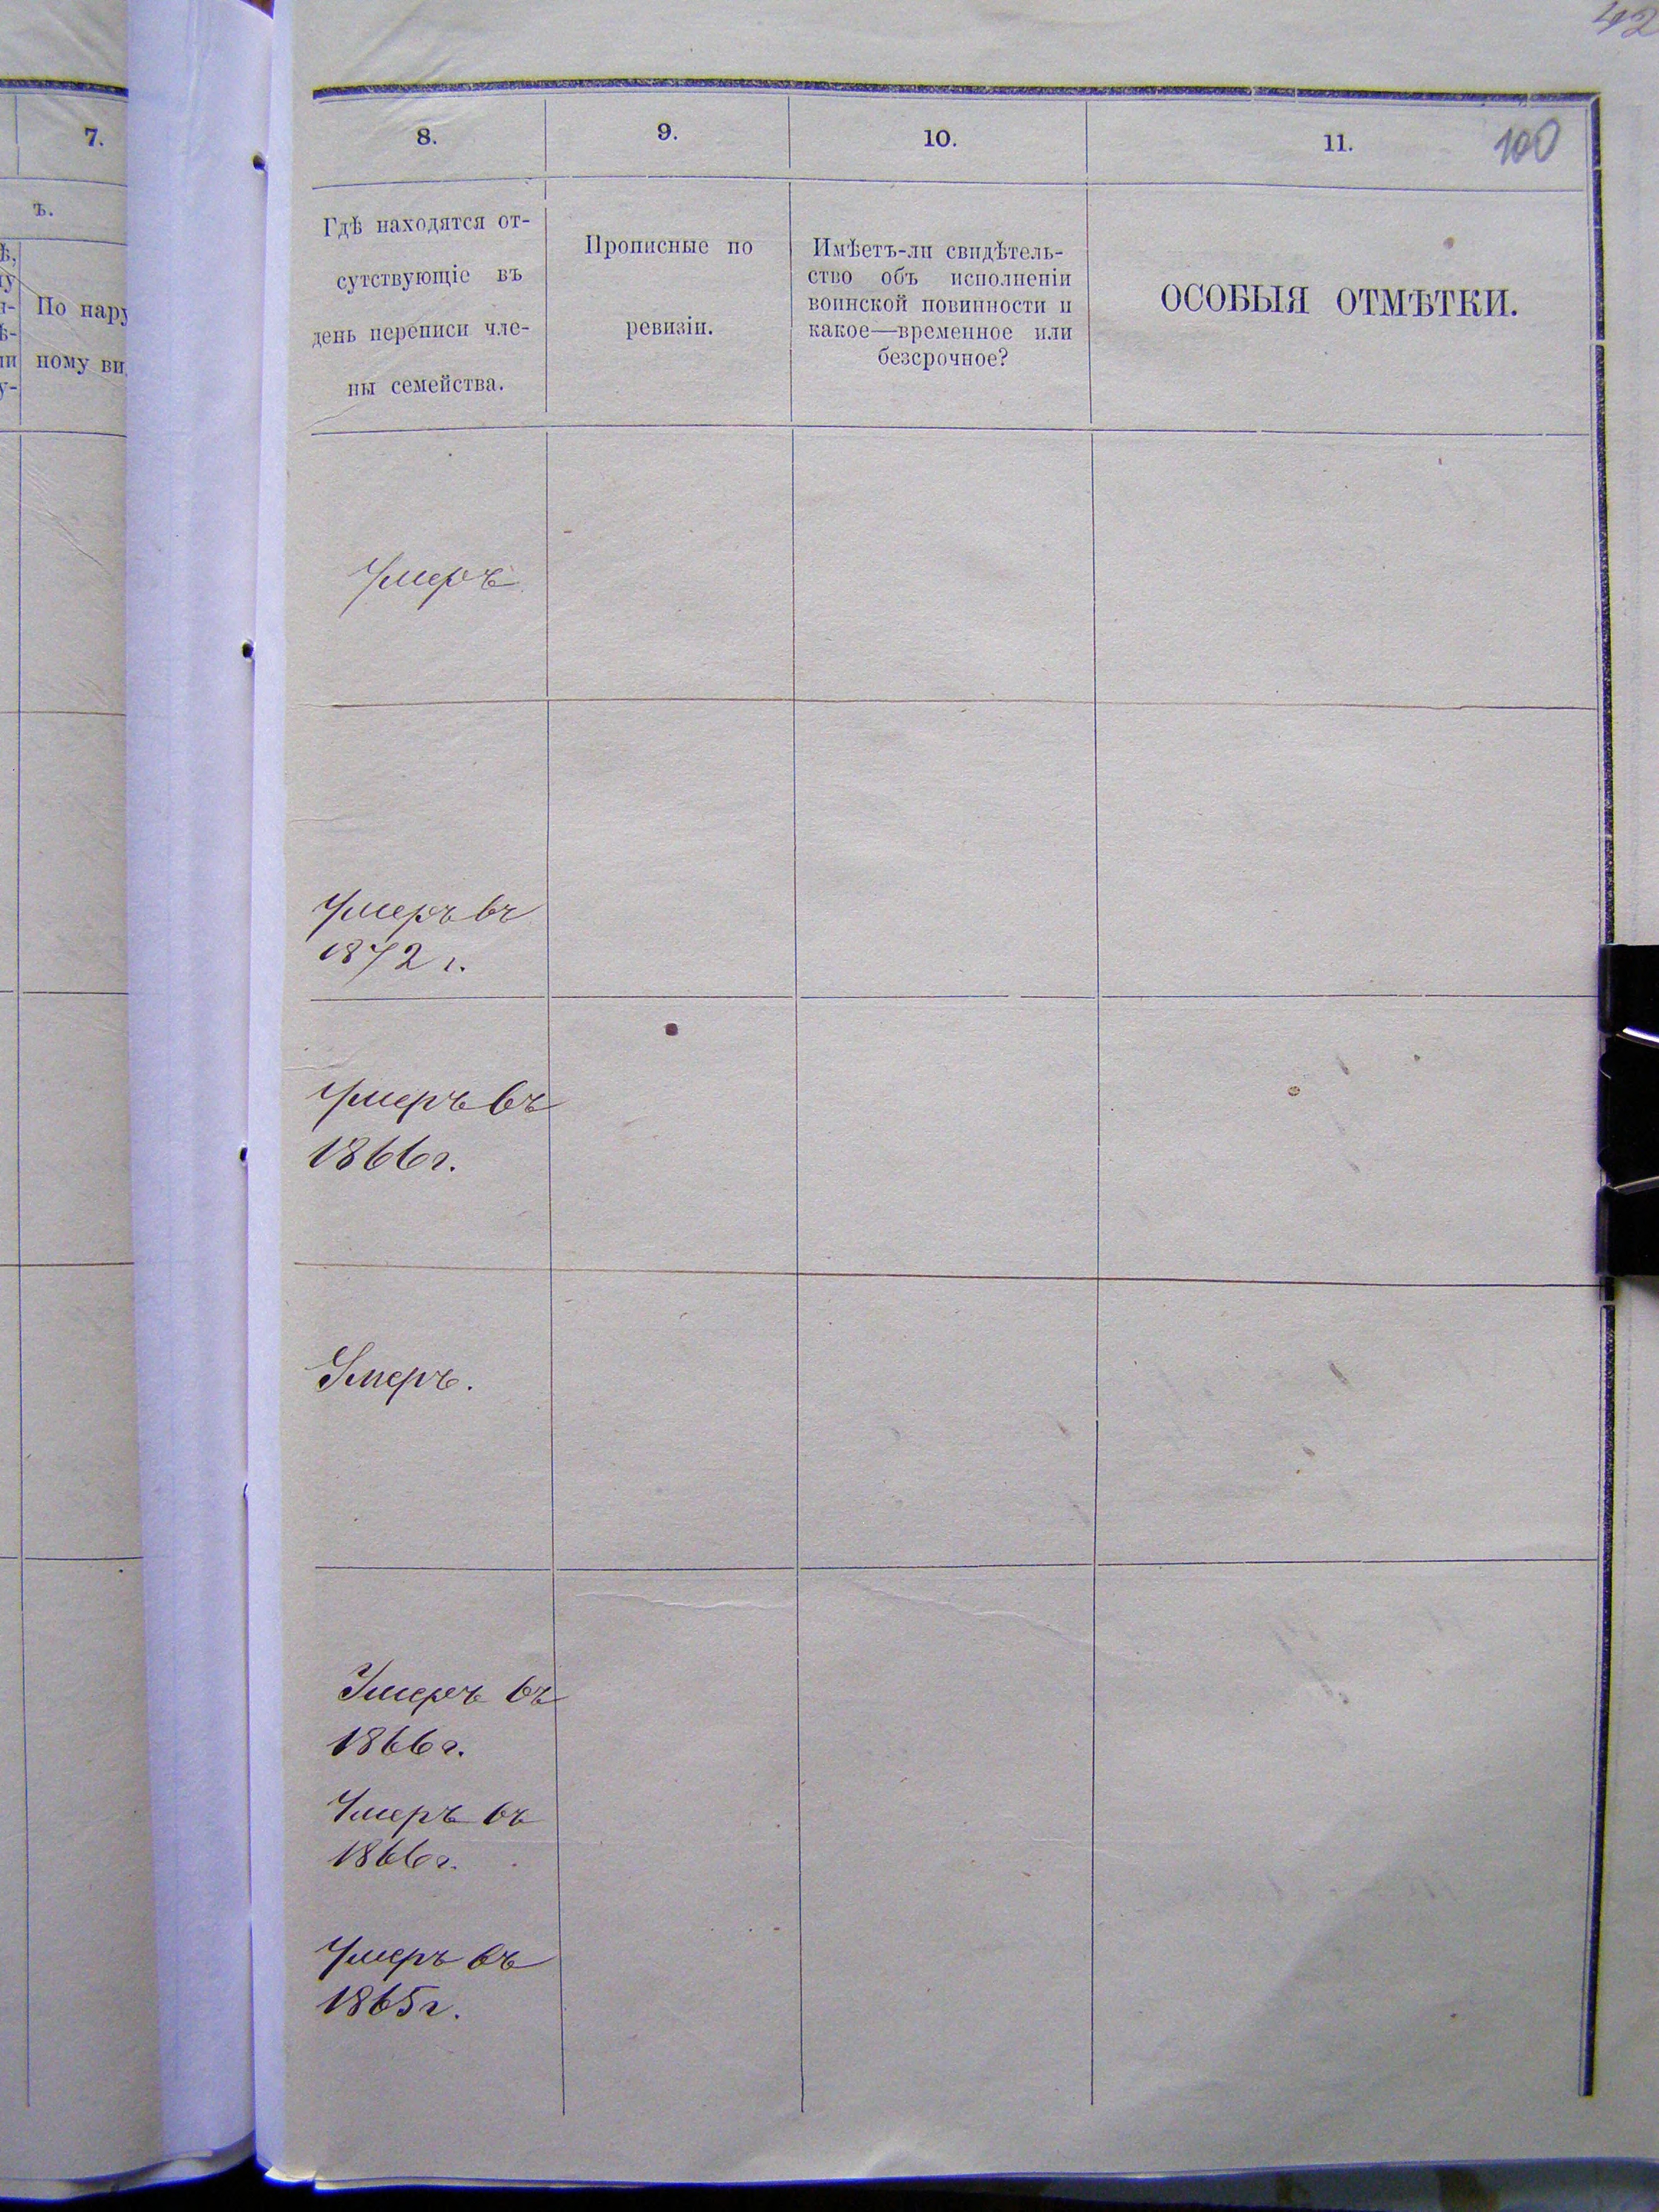 42
7.
8.
9.
10.
11.
100
ъ.
По нару
ному ви
Гдѣ находятся от-
сутствующіе въ
день переписи чле-
ны семейства.
Прописные по
ревизіи.
Имѣетъ-ли свидѣтель-
ство объ исполненіи
воинской повинности и
какое—временное или
безсрочное?
ОСОБЫЯ ОТМѢТКИ.
Умеръ
Умеръ въ
1872 г.
Умеръ въ
1866 г.
Умеръ.
Умеръ въ
1866 г.
Умеръ въ
1866 г.
Умеръ въ
1865 г.